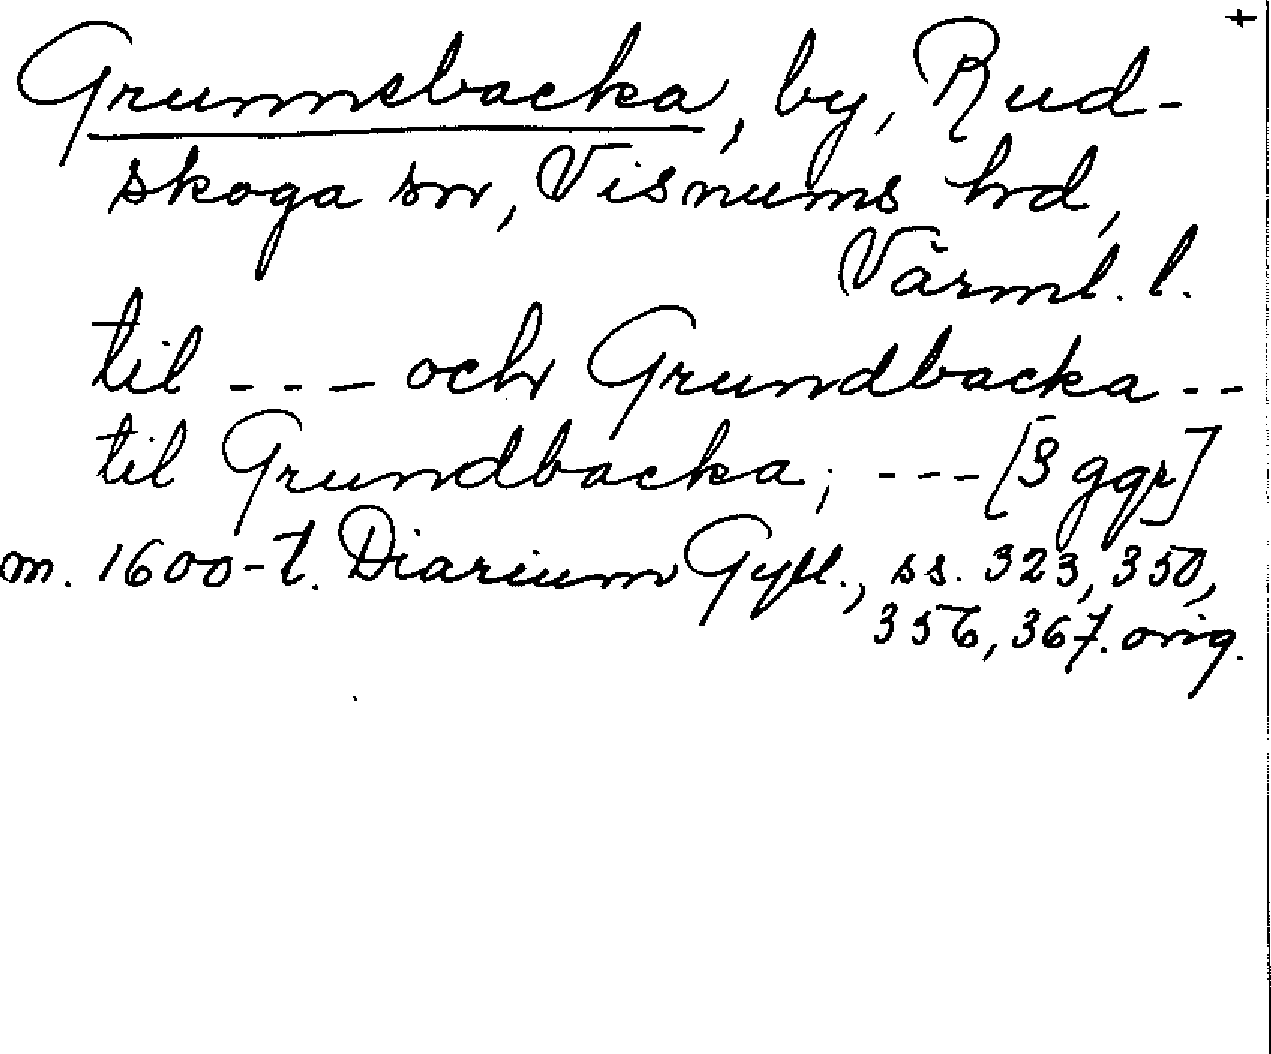 +
Grunnebacka, by, Rud-
skoga sn, Visnums hd,
Värml. l.
til --- och Grundbacka --
til Grundbacka; --- [3 ggr]
m. 1600-t. Diarium Gyll., ss. 323, 350,
356, 367. orig.